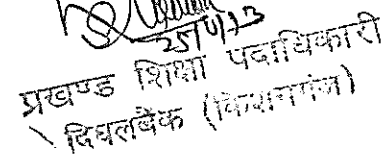 25/4/13
प्रखण्ड शिक्षा पदाधिकारी
दिघलबैंक (किशनगंज)